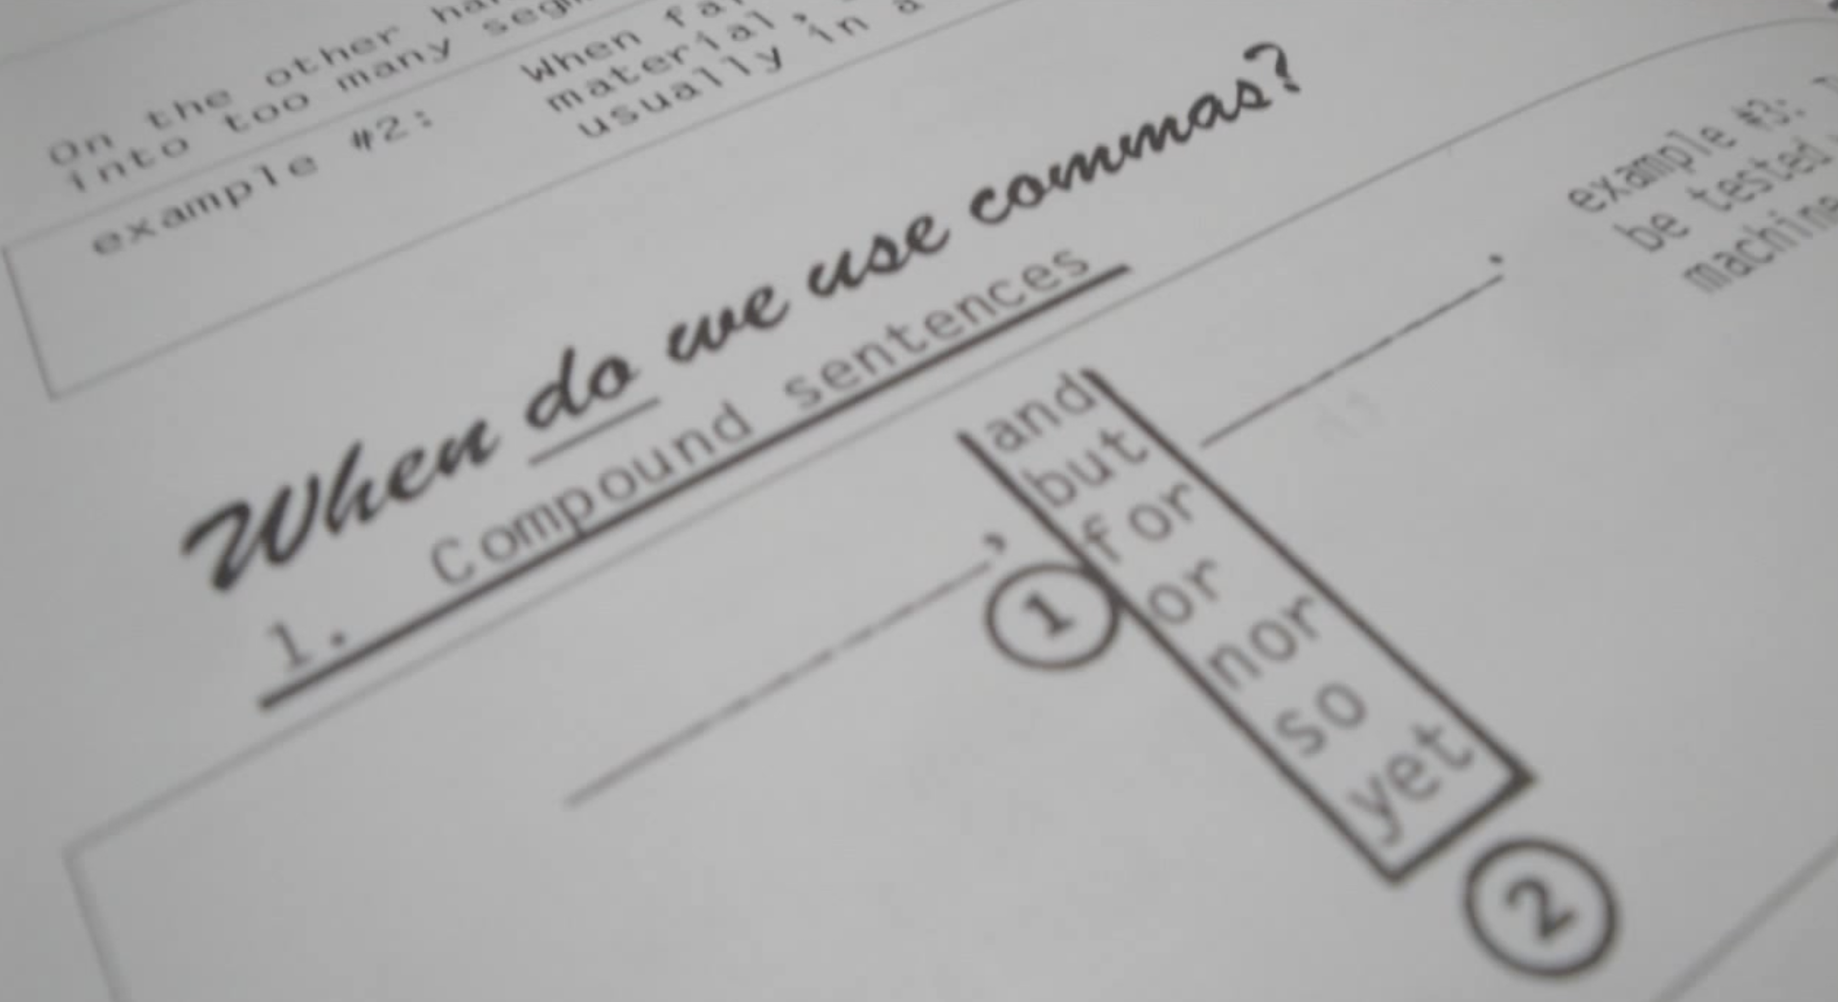 On the other
into too many
example #2: When
material,
usually in a
When do we use commas?
1. Compound sentences
, and .
but
for
or
nor
so
yet
1
2
example #3:
be tested
machine